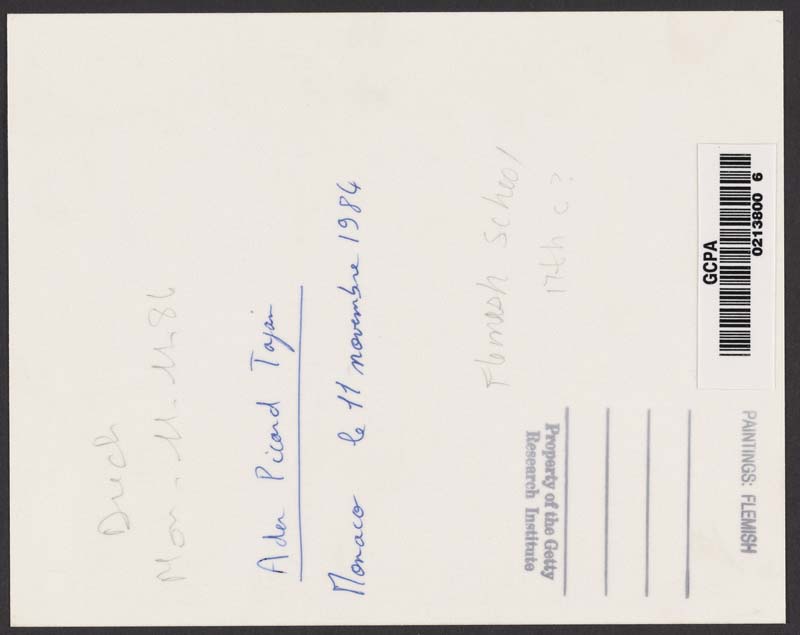 Mon. 11.11.84
Ader Picard Tajan
Monaco le 11 novembre 1984
Flemish School
17th c?
Property of the Getty
Research Institute
GCPA
0213800 6
PAINTINGS: FLEMISH